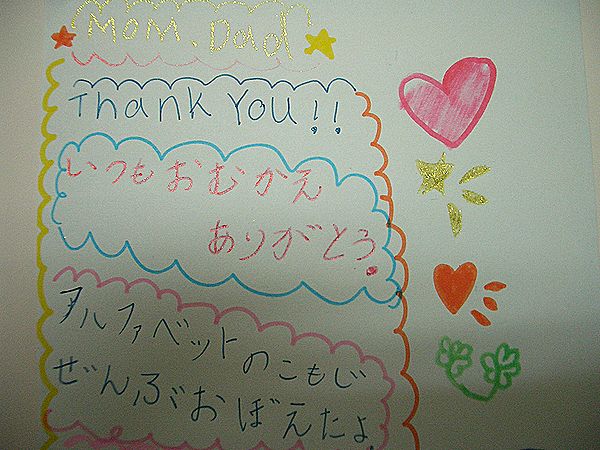 MOM. Dad
Thank You!!
いつもおむかえ
ありがとう。
アルファベットのこもじ
ぜんぶおぼえたよ